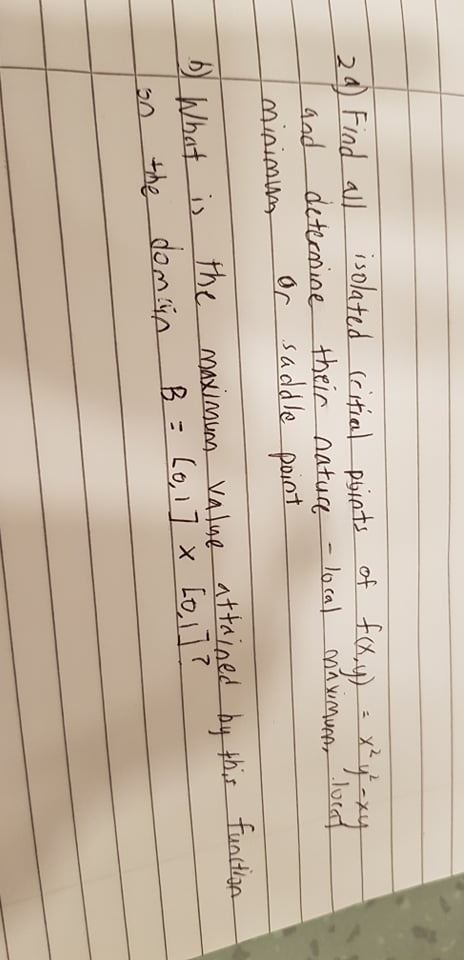 2a) Find all isolated critical points of f(x,y) = x²y²-xy
and determine their nature - local maximum, local
minimum or saddle point
b) What is the maximum value attained by this function
on the domain B = [0,1] × [0,1]?